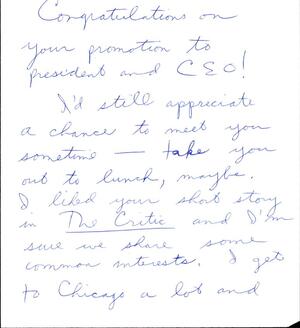 Congratulations on
your promotion to
president and CEO!
I'd still appreciate
a chance to meet you
sometime — take you
out to lunch, maybe.
I liked your short story
in The Critic and I'm
sure we share some
common interests. I get
to Chicago a lot and